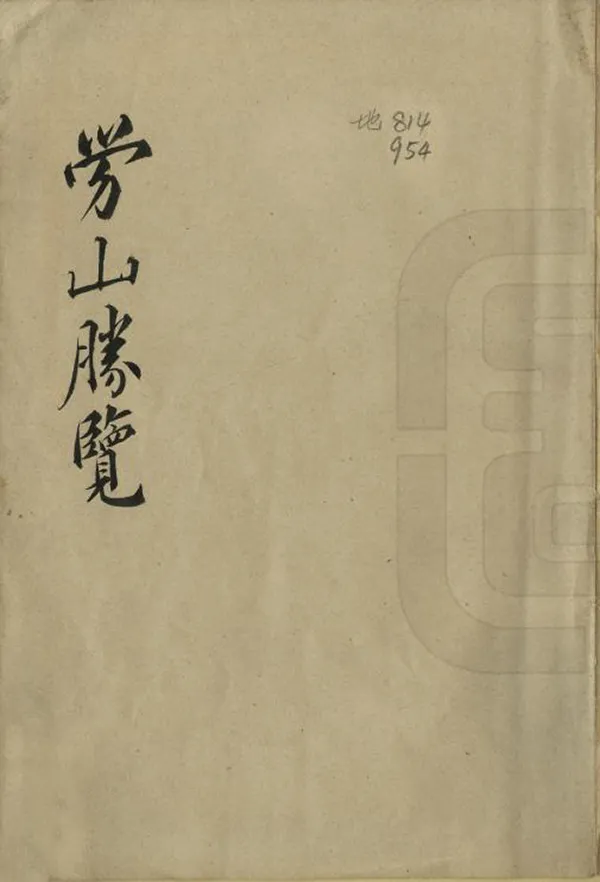 地 814
954
劳山勝覽